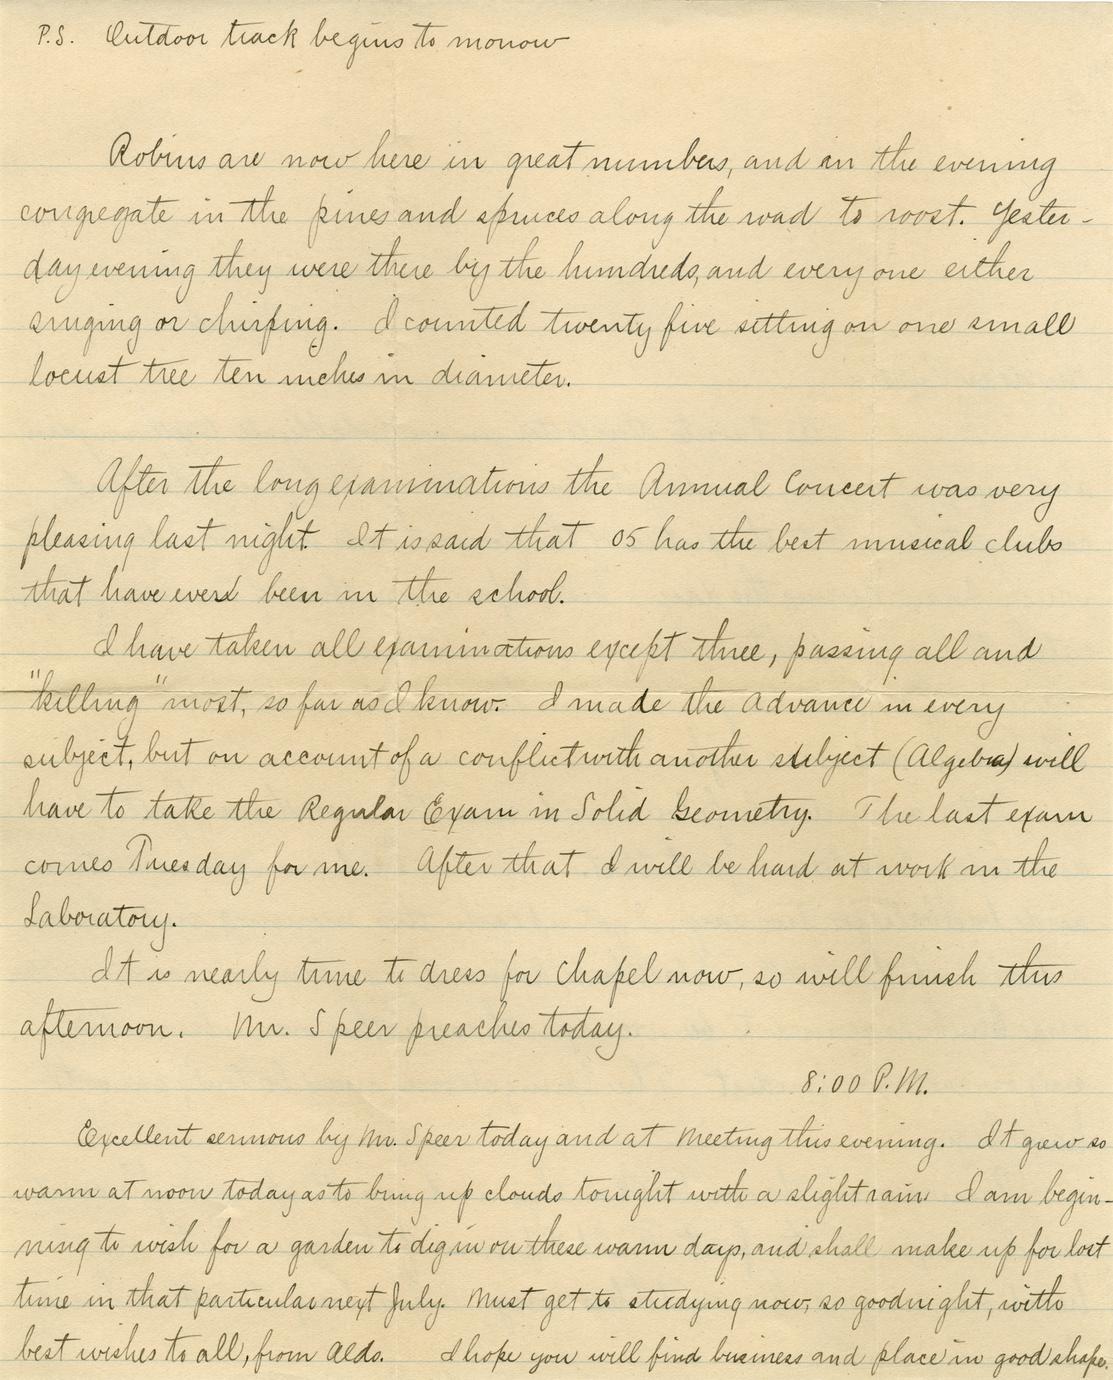 P.S. Outdoor track begins to morrow
Robins are now here in great numbers, and in the evening
congregate in the pines and spruces along the road to roost. Yester-
day evening they were there by the hundreds, and every one either
singing or chirping. I counted twenty five sitting on one small
locust tree ten inches in diameter.
After the long examinations the Annual Concert was very
pleasing last night. It is said that 05 has the best musical clubs
that have ever been in the school.
I have taken all examinations except three, passing all and
"killing" most, so far as I know. I made the advance in every
subject, but on account of a conflict with another subject (Algebra) will
have to take the Regular Exam in Solid Geometry. The last exam
comes Tuesday for me. After that I will be hard at work in the
Laboratory.
It is nearly time to dress for Chapel now, so will finish this
afternoon. Mr. Speer preaches today.
8:00 P.M.
Excellent sermons by Mr. Speer today and at Meeting this evening. It grew so
warm at noon today as to bring up clouds tonight with a slight rain. I am begin-
ning to wish for a garden to dig in on these warm days, and shall make up for lost
time in that particular next July. Must get to studying now, so goodnight, with
best wishes to all, from Aldo. I hope you will find business and place in good shape.